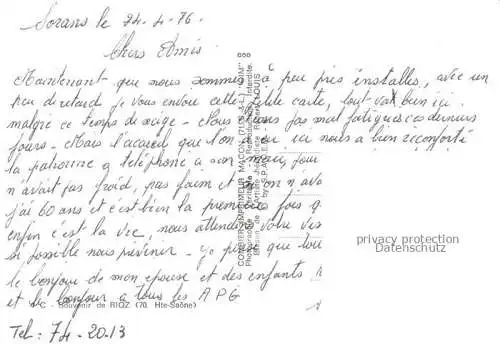 Sorans le 24-4-76.
Chers Amis
Maintenant que nous sommes à peu près installés, avec un
peu de retard je vous envoie cette petite carte, tout va bien ici
malgré ce temps de neige - Nous
jours - Mais l'accueil que l'on a eu ici nous a bien réconforté
la patronne a téléphoné a son mari, pour
n'avait pas froid, pas faim et on n'ava
j'ai 60 ans et c'est bien la première fois q
enfin c'est la vie, nous attendons votre vis
si possible nous prévenir - je pense que tou
le bonjour de mon épouse et des enfants
et le bonjour a tous les A P G
Tel: 74-20.13
Souvenir de RIOZ (70. Hte-Saône)
COMBIER IMPRIMEUR MACON (S.-&-L.) "CIM"
privacy protection
Datenschutz